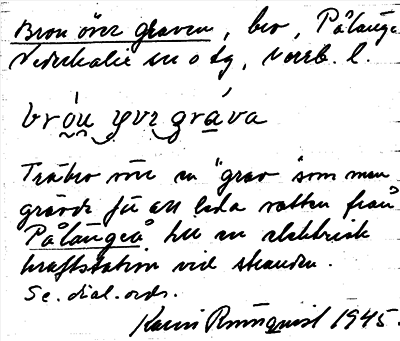 Bron över graven, bro, Pålänge
Nederkalix sn o tg, Norrb. l.
bróu yvr gráva
Träbro över en "grav" som man
grävde för att leda vatten från
Pålängeå till en elektrisk
kraftstation vid stranden.
Se. dial. ords.
Karin Runnquist 1945.